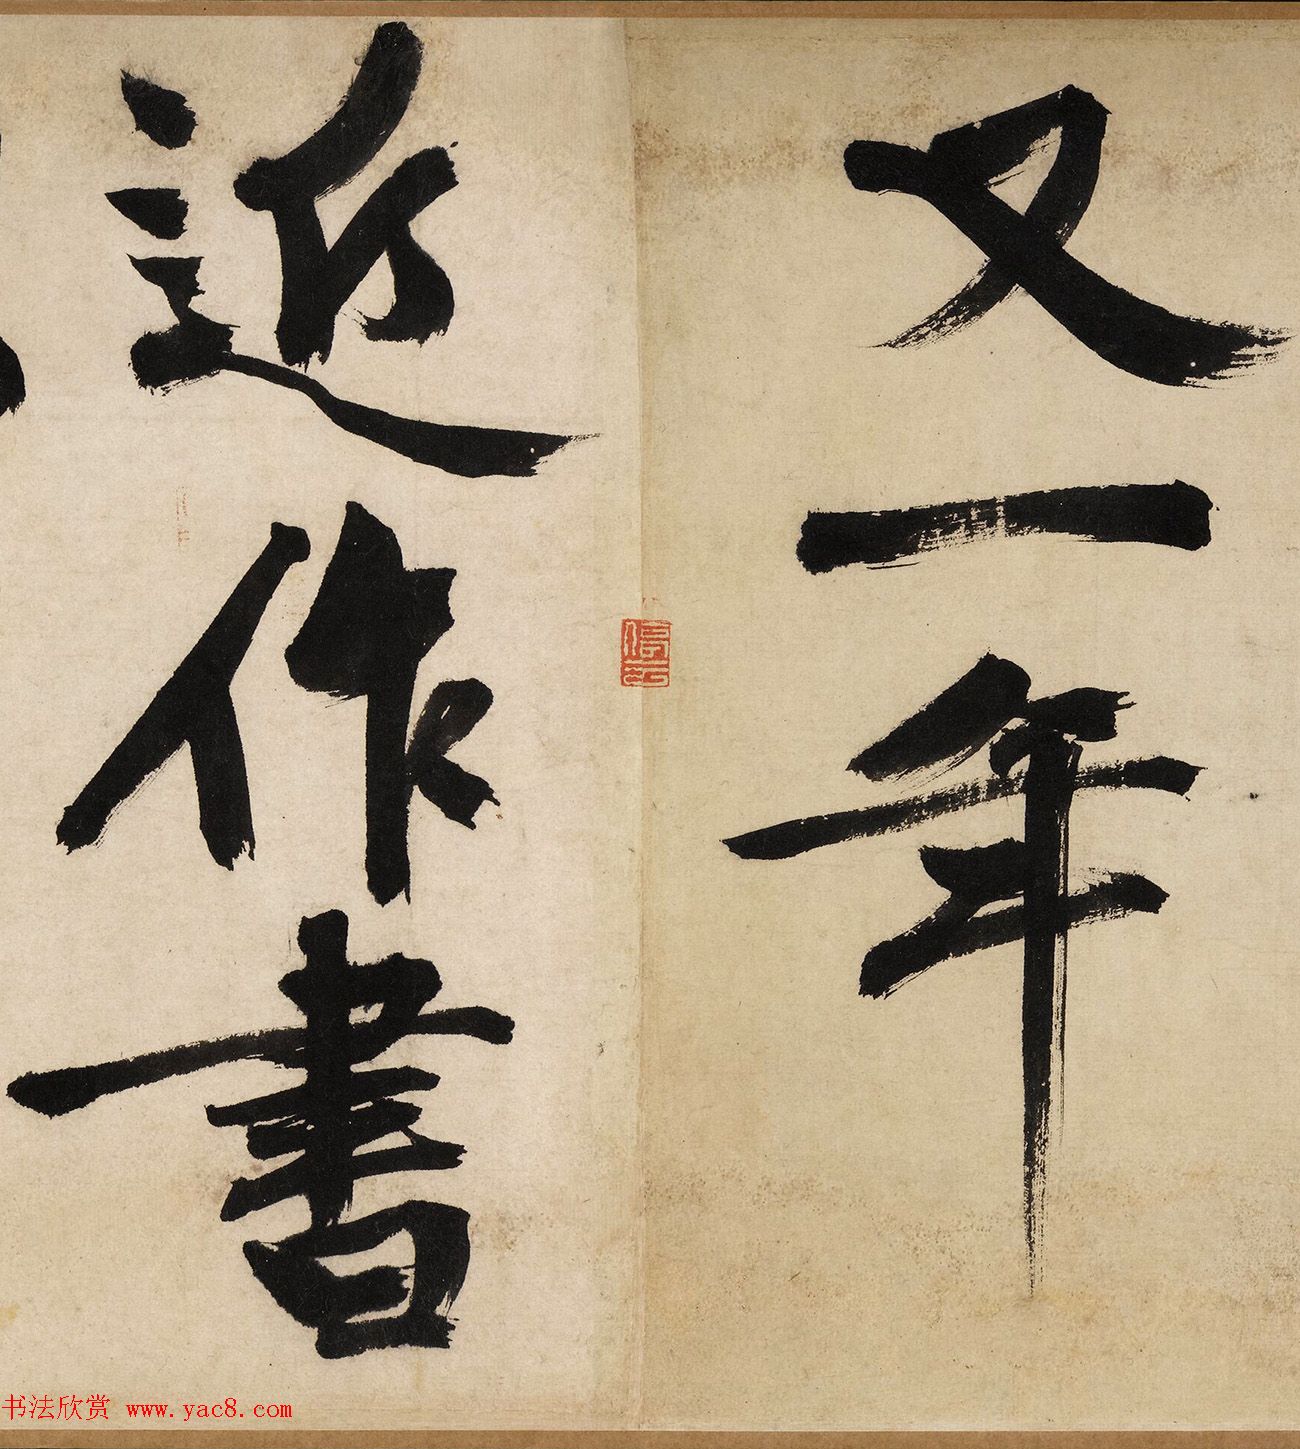 又一年
近作書
书法欣赏 www.yac8.com